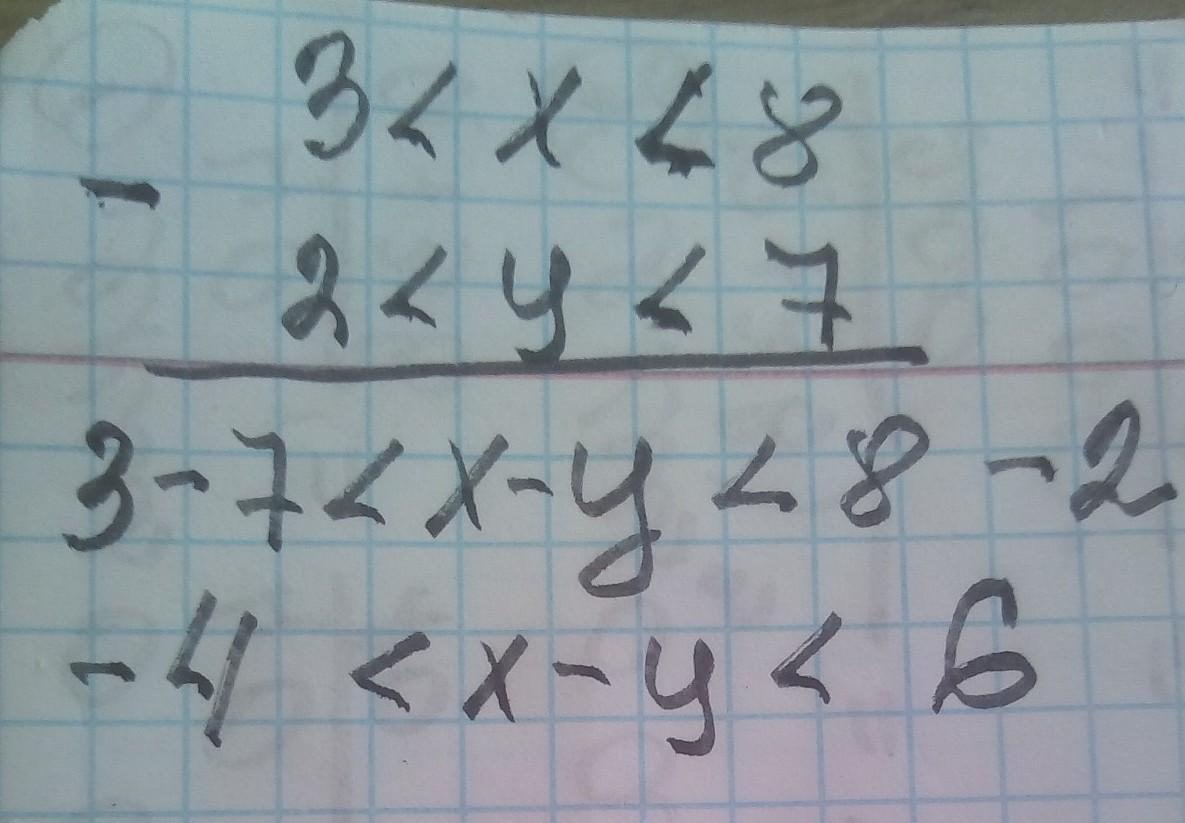 3 < x < 8
-
2 < y < 7
3 - 7 < x - y < 8 - 2
- 4 < x - y < 6